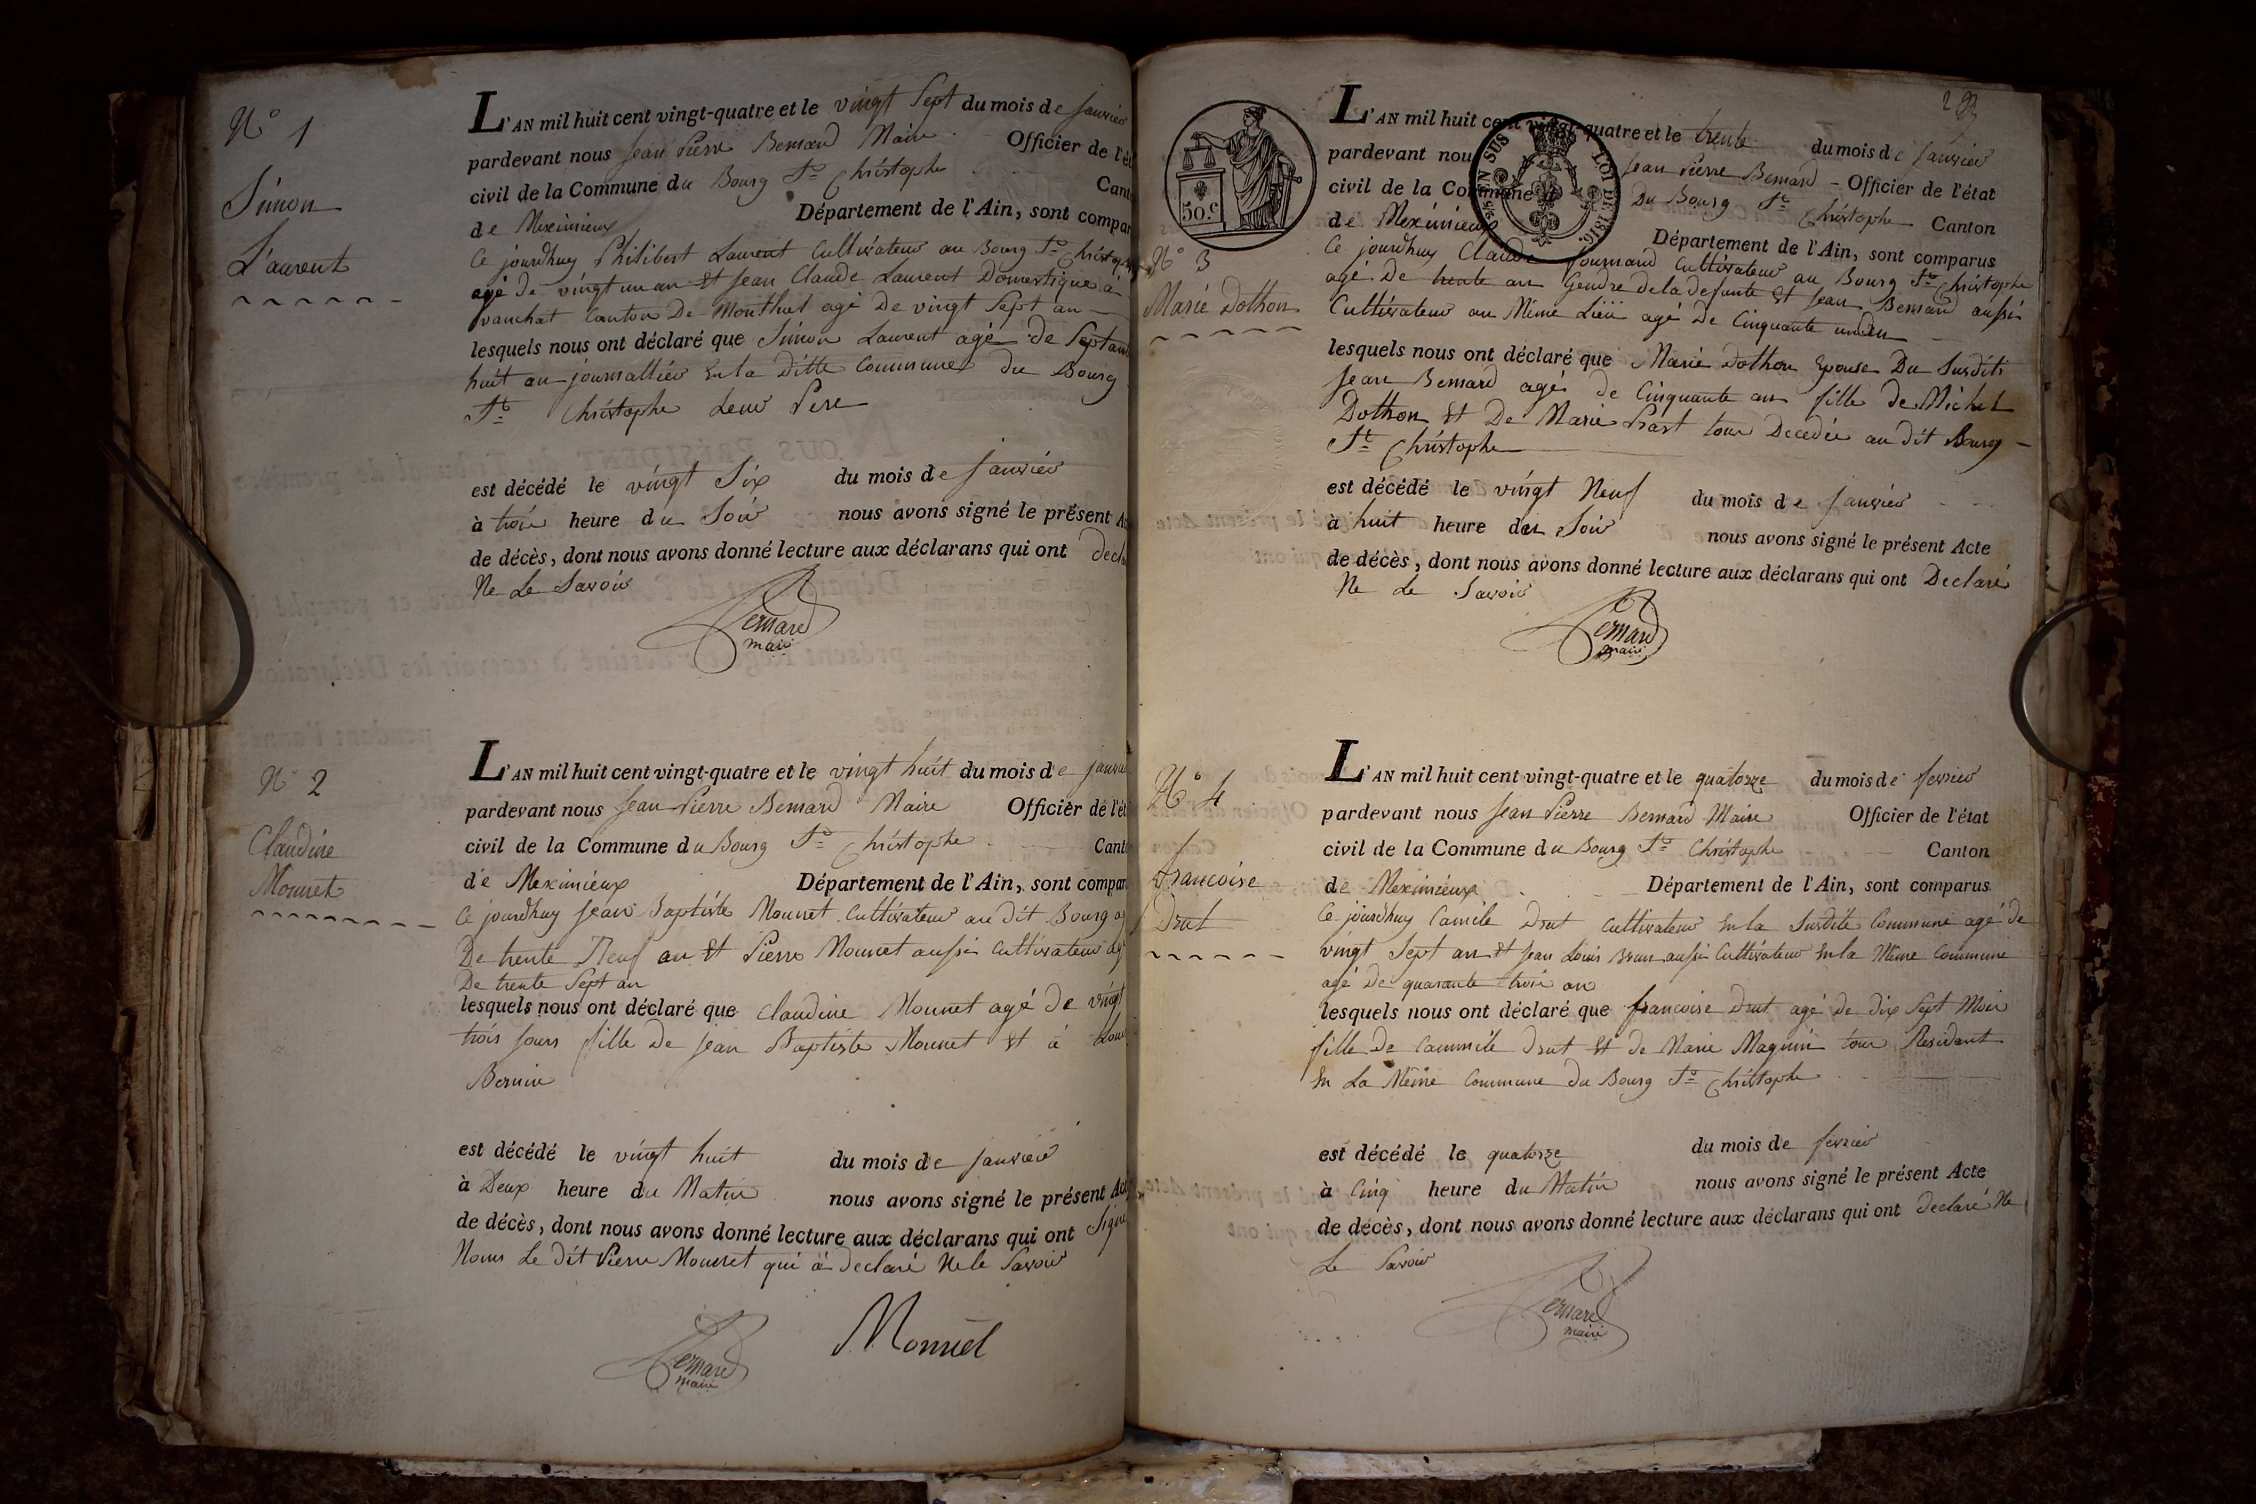 N° 1
Simon
Laurent
L'AN mil huit cent vingt-quatre et le vingt Sept du mois de janvier
pardevant nous jean Pierre Bernard Maire Officier de l'ét
civil de la Commune du Bourg St Christophe Cant
de Meximieux Département de l'Ain, sont compar
Ce jourdhuy Philibert Laurent Cultivateur au Bourg St Christop
agé de vingt un an Et jean Claude Laurent Domestique a
canton De Montluel agé De vingt Sept an
lesquels nous ont déclaré que Simon Laurent agé de Septante
huit an journallier En la Ditte Commune du Bourg
St Christophe Leur Pere
est décédé le vingt Six du mois de janvier
à trois heure du Soir nous avons signé le présent A
de décès, dont nous avons donné lecture aux déclarans qui ont decla
Ne Le Savoir
Bernard
maire
N° 2
Claudine
Mounet
L'AN mil huit cent vingt-quatre et le vingt huit du mois de janvi
pardevant nous jean Pierre Bernard Maire Officier de l'ét
civil de la Commune du Bourg St Christophe Cant
de Meximieux Département de l'Ain, sont compar
Ce jourdhuy jean Baptiste Mounet Cultivateur au dit Bourg ag
De trente Neuf an Et Pierre Mounet aussi Cultivateur ag
De trente Sept an
lesquels nous ont déclaré que Claudine Mounet agé de vingt
trois jours fille De jean Baptiste Mounet Et á
Bernin
est décédé le vingt huit du mois de janvier
à Deux heure du Matin nous avons signé le présent Act
de décès, dont nous avons donné lecture aux déclarans qui ont Signé
Le dit Pierre Mounet qui á declaré Ne le Savoir
Bernard
maire
Mounet
293
50.c
LOI DE 1816.
EN SUS
L'AN mil huit cent vingt-quatre et le trente du mois de janvier
pardevant nous jean Pierre Bernard Officier de l'état
civil de la Commune Du Bourg St Christophe Canton
de Meximieux Département de l'Ain, sont comparus
N° 3
Marie Dothon
Ce jourdhuy Claude Cultivateur au Bourg St Christophe
agé De trente an Gendre de la defunte Et jean Bernard aussi
Cultivateur au Même Lieu agé De Cinquante un an
lesquels nous ont déclaré que Marie Dothon Epouse Du Susdit
jean Bernard agé de Cinquante an fille de Michel
Dothon Et De Marie tous Decedée au dit Bourg
St Christophe
est décédé le vingt Neuf du mois de janvier
à huit heure du Soir nous avons signé le présent Acte
de décès, dont nous avons donné lecture aux déclarans qui ont Declaré
Ne Le Savoir
Bernard
maire
N° 4
francoise
Drut
L'AN mil huit cent vingt-quatre et le quatorze du mois de fevrier
pardevant nous jean Pierre Bernard Maire Officier de l'état
civil de la Commune du Bourg St Christophe Canton
de Meximieux Département de l'Ain, sont comparus
Ce jourdhuy Camile Drut cultivateur En la Susdite Commune agé de
vingt Sept an Et jean Louis Brun aussi Cultivateur En la Même Commune
agé De quarante trois an
lesquels nous ont déclaré que francoise Drut agé de Dix Sept Mois
fille De Cammile Drut Et de Marie Magnin tous Residant
En La Même Commune Du Bourg St Christophe
est décédé le quatorze du mois de fevrier
à Cinq heure du Matin nous avons signé le présent Acte
de décès, dont nous avons donné lecture aux déclarans qui ont declaré Ne
Le Savoir
Bernard
maire